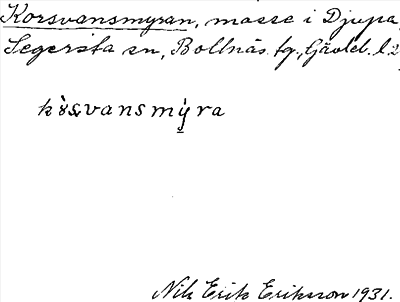 Korsvansmyran, mosse i Djupa,
Segersta sn, Bollnäs tg., Gävleb. l.
kòsvansmỳra
Nils Erik Eriksson 1931.